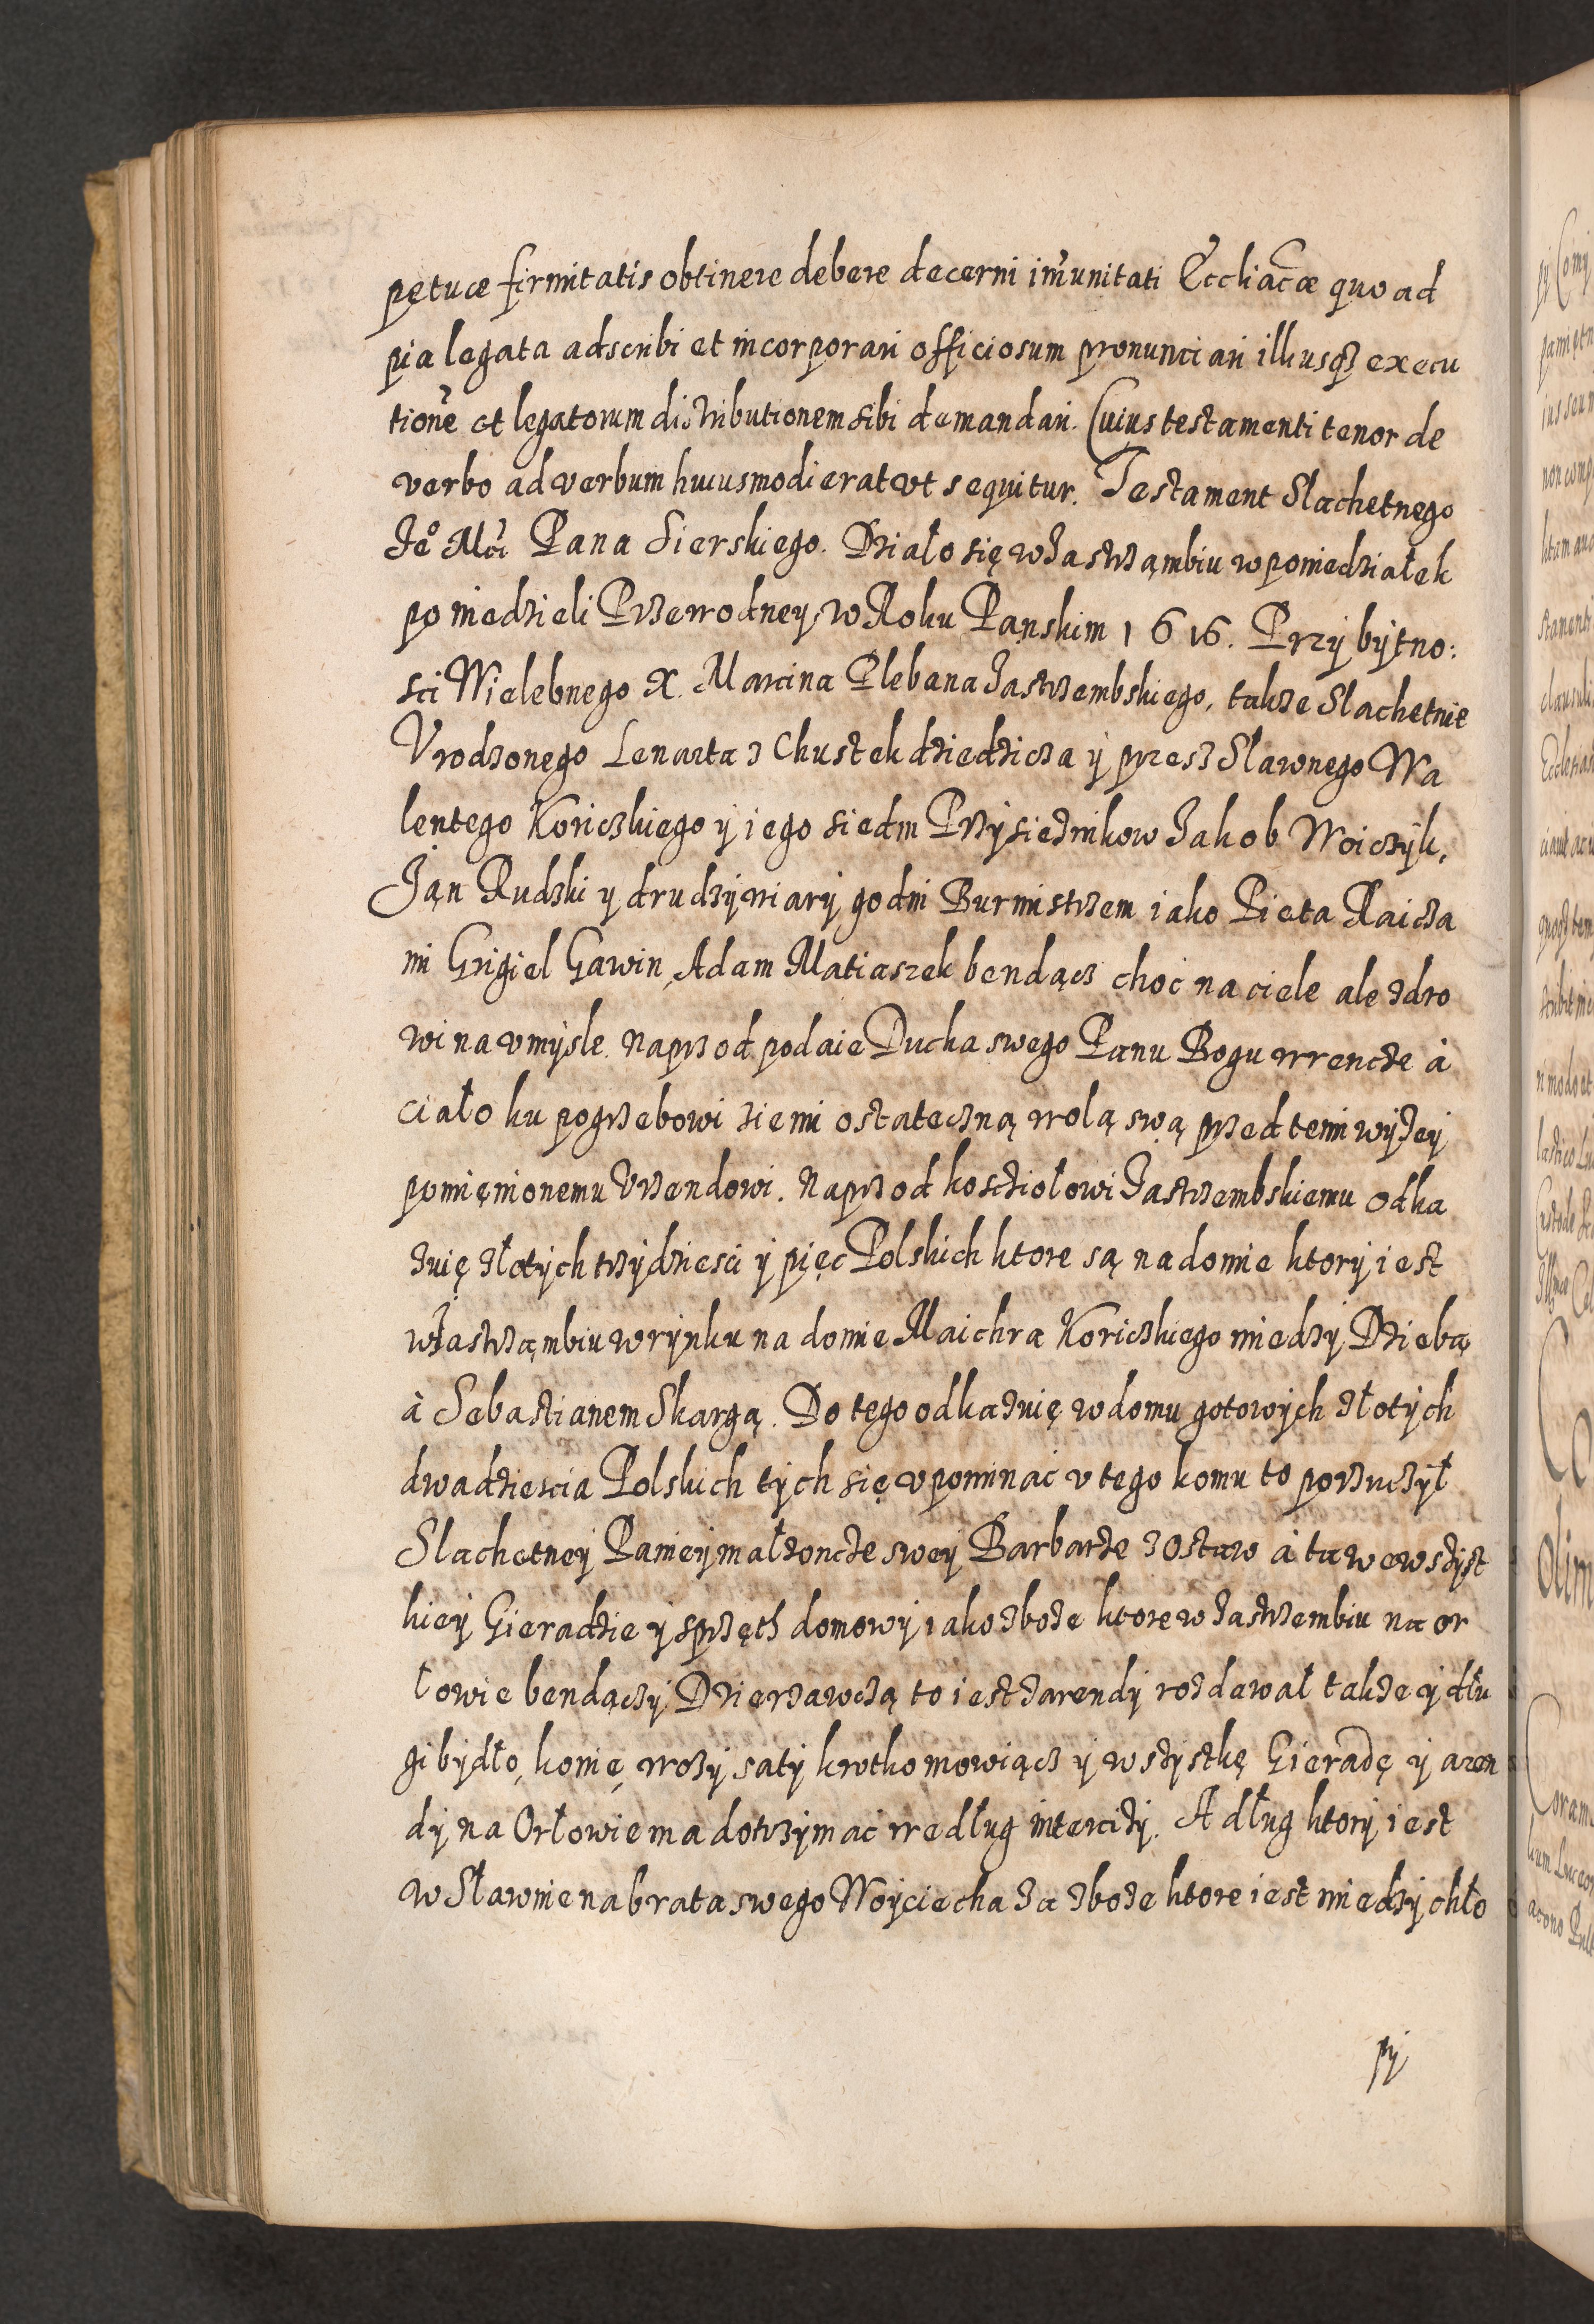 petuæ firmitatis obtinere debere decerni im̃unitati Eccliac̃æ quo ad
pia legata adscribi et incorporari officiosum pronunciari illiusqȝ execu
tionẽ et legatorum distributionem sibi demandari. Cuius testamenti tenor de
verbo ad verbum huiusmodi erat vt sequitur. Testament Slachetnego
Jeº Mci Pana Sierskiego. Działo się w Jastrząmbiu w poniedziałek
po niedzieli Przewodney, w Roku Panskim 1616. Przÿ bÿtno:
sci Wielebnego X. Marcina Plebana Jastrzembskiego, takze Slachetnie
Vrodzonego Lenarta z Chustek dziedzicza ÿ przesz Slawnego Wa
lentego Koriczkiego ÿ iego siedm Przÿsiężnikow Jakob Woiczÿk,
Ján Rudzki y drudzÿ wiarÿ godni Burmistrzem iako Pieta Raicza
mi Grigiel Gawin, Adam Matiaszek bendącz choć na ciele ale zdro
wi na vmÿsle. Naprzod podaie Ducha swego Panu Bogu wrencze à
ciało ku pogrzebowi ziemi ostateczną wolą swą przed temi wÿżeÿ
pomięnionemu Vrzendowi. Naprzod kosciołowi Jastrzembskiemu odka
zuię złotÿch trzÿdziesci ÿ pięc Polskich ktore są na domie ktorÿ iest
w Jastrząmbiu w rÿnku na domie Maichra Koriczkiego miedzÿ Dziebą
à Sebastianem Skargą. Do tego odkazuię w domu gotowÿch złotÿch
dwadziescia Polskich tÿch się vpominać v tego komu to porzuczÿł
Slachetneÿ Panieÿ małżoncze sweÿ Barbarze zostaw à ta we wszÿst
kieÿ Gieradzie ÿ sprzęth domowÿ iako zboże ktore w Jastrzembiu na or
łowie bendączÿ Dzierzawczą to iest z arendÿ rozdawał także ÿ dłu
gi bÿdło, konię, wozÿ satÿ krotko mowiącz ÿ wszÿstkę Gieradę ÿ aren
dÿ na Orłowie ma dotrzÿmać według intercizÿ. A dług ktorÿ iest
w Sławnie na brata swego Woÿciecha za zboże ktore iest miedzÿ chło
pÿ